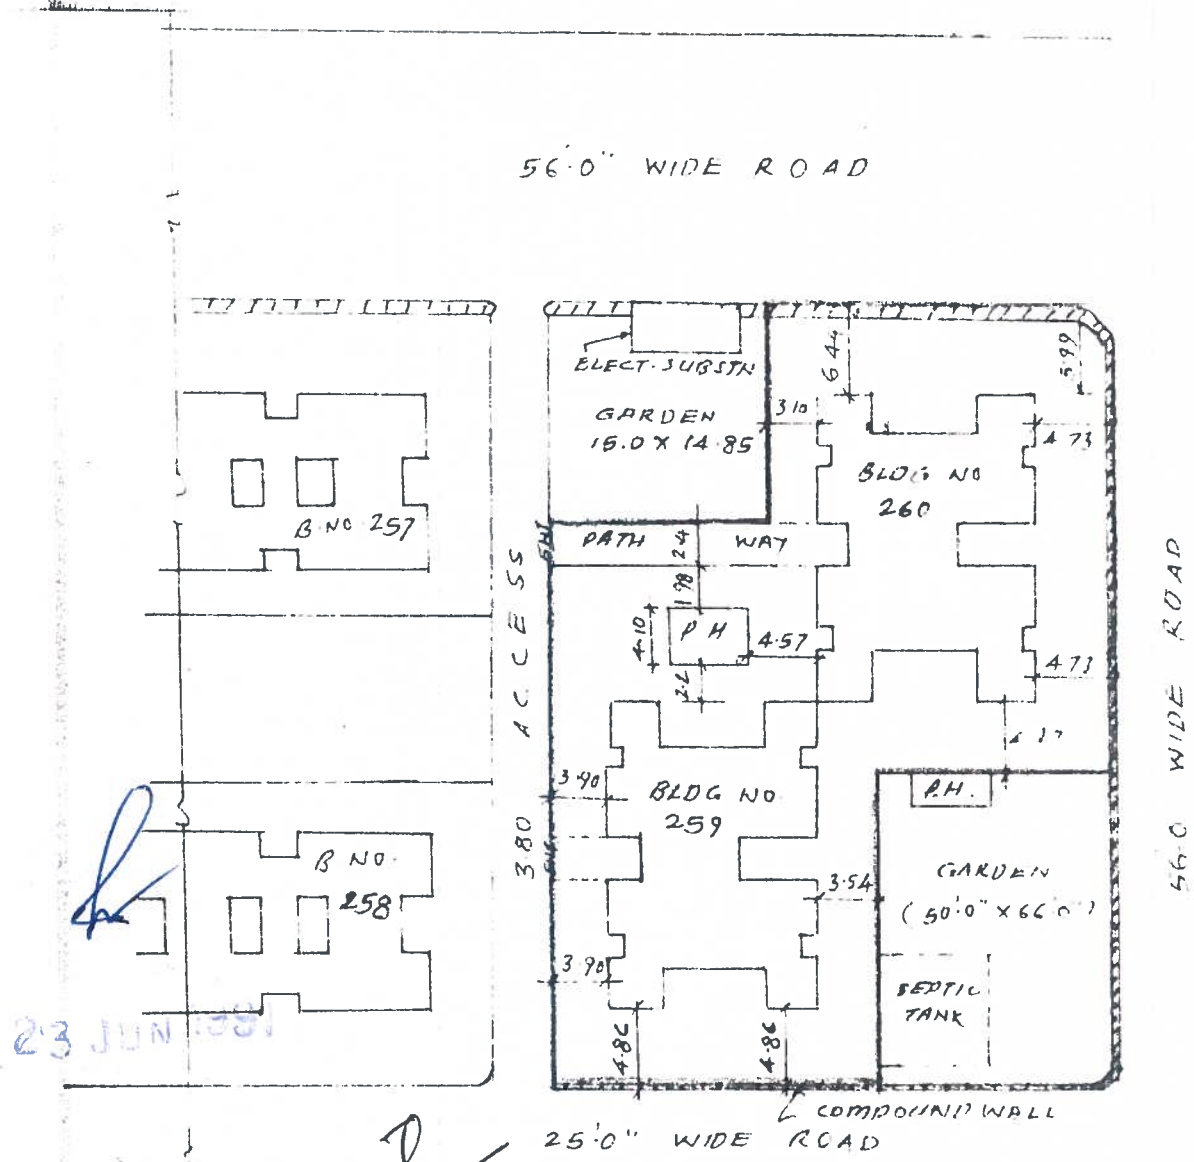 56'.0" WIDE ROAD
ELECT. SUBSTN
GARDEN
15.0 X 14.85
6.44
5.99
3.10
4.73
BLDG NO
260
B.NO 257
PATH WAY
2.4
1.98
4.10
P H
4.57
2.2
4.73
3.80 ACCESS
56.0 WIDE ROAD
3.90
BLDG NO
259
P.H.
B NO.
258
3.54
GARDEN
(50'.0" X 66'.0")
3.90
SEPTIC
TANK
4.86
4.86
23 JUN 1991
COMPOUND WALL
25'.0" WIDE ROAD